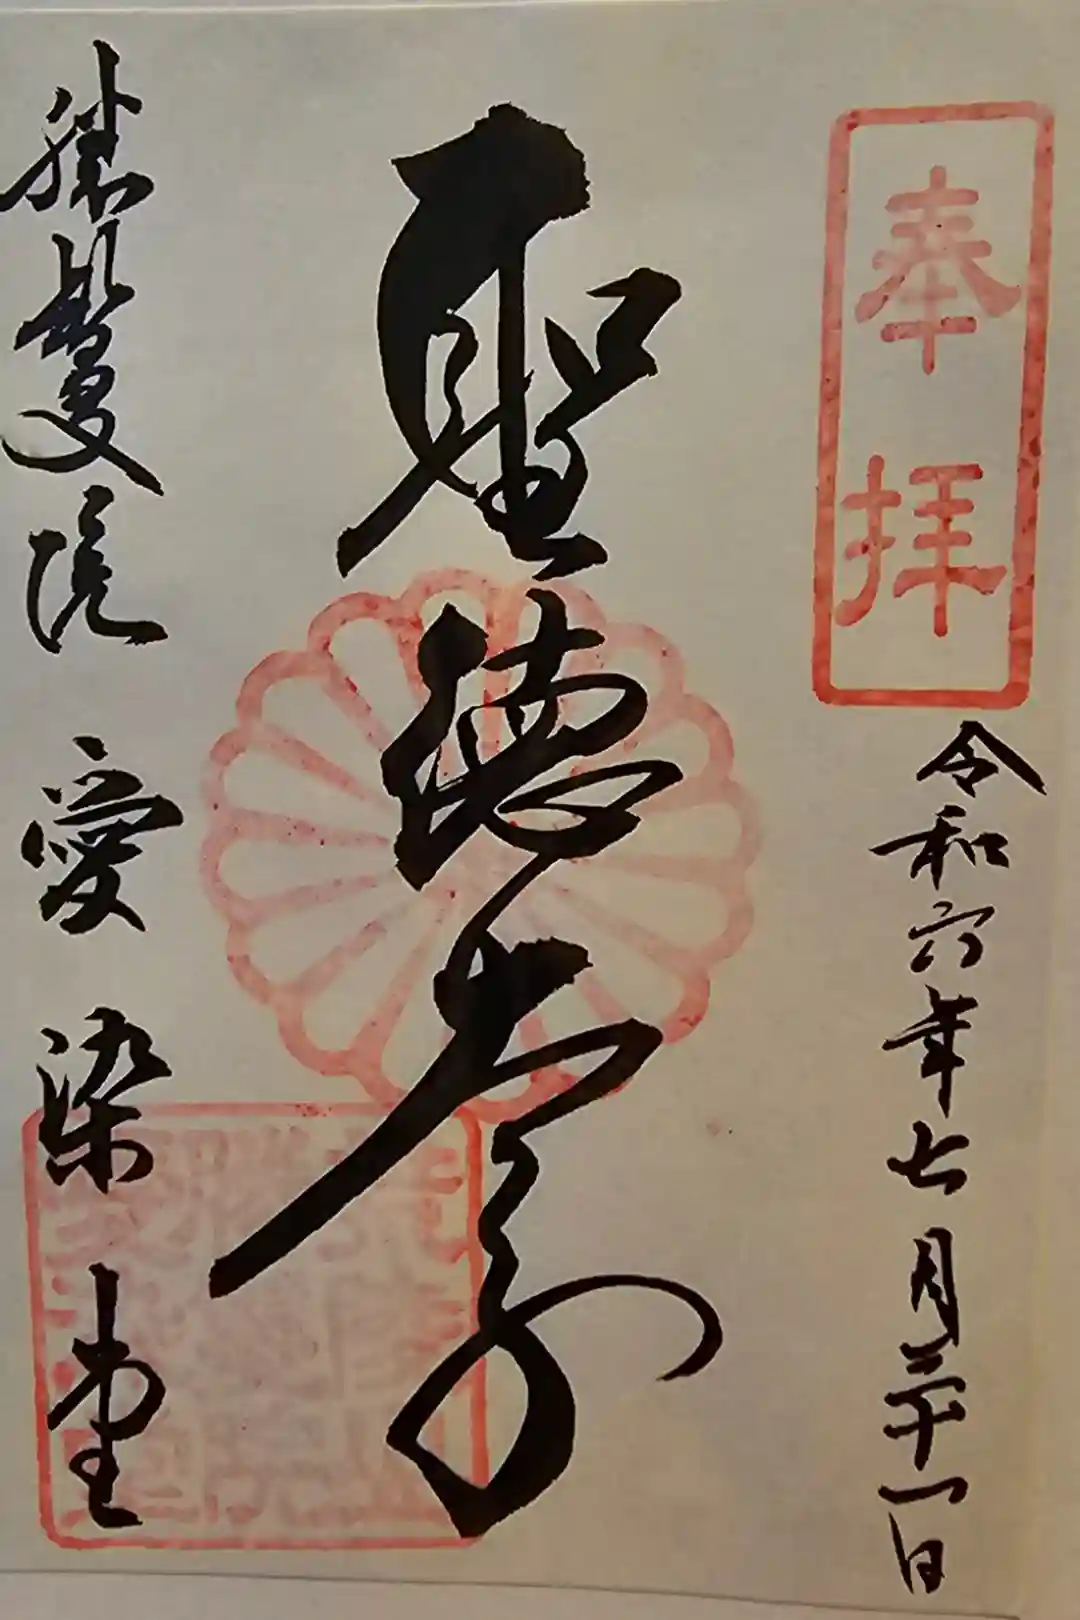 奉拝
令和六年七月二十一日
聖徳太子
勝鬘院 愛染堂